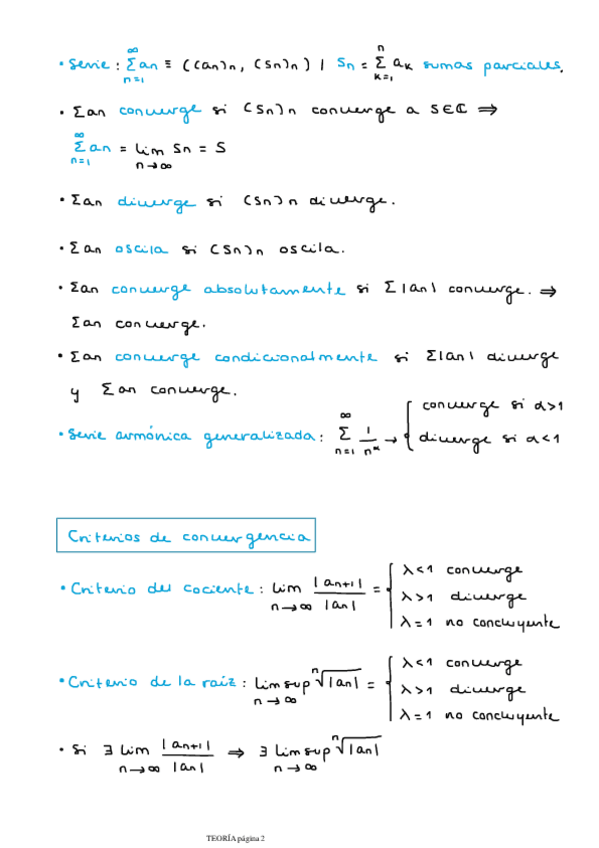 • Serie : ∞Σn=1 an ≡ ((an)n, (Sn)n) | Sn = nΣk=1 ak sumas parciales.
• Σan converge si (Sn)n converge a S∈ℂ ⇒
∞Σn=1 an = lim n→∞ Sn = S
• Σan diverge si (Sn)n diverge.
• Σan oscila si (Sn)n oscila.
• Σan converge absolutamente si Σ|an| converge. ⇒
Σan converge.
• Σan converge condicionalmente si Σ|an| diverge
y Σan converge.
• Serie armónica generalizada: ∞Σn=1 1/n^α → { converge si α>1
diverge si α<1
Criterios de convergencia
• Criterio del cociente : lim n→∞ |an+1|/|an| = { λ<1 converge
λ>1 diverge
λ=1 no concluyente
• Criterio de la raíz : limsup n→∞ ⁿ√|an| = { λ<1 converge
λ>1 diverge
λ=1 no concluyente
• Si ∃ lim n→∞ |an+1|/|an| ⇒ ∃ limsup n→∞ ⁿ√|an|
TEORÍA página 2